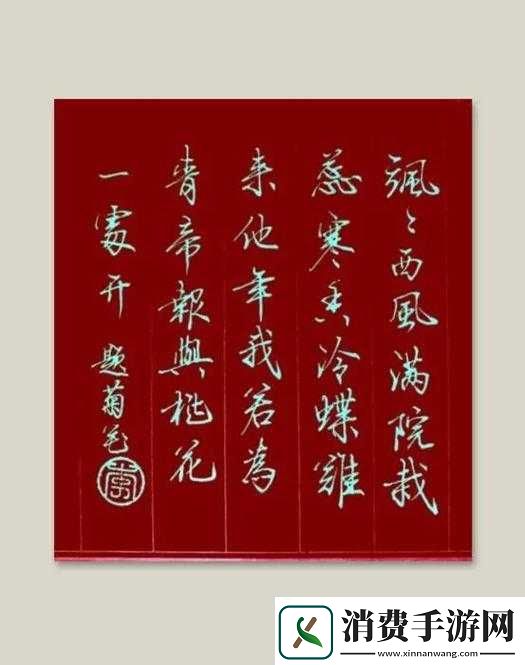 飒〻西风满院栽
蕊寒香冷蝶难
来他年我若为
青帝报与桃花
一处开 题菊花
消费手游网
www.xinnanwang.com